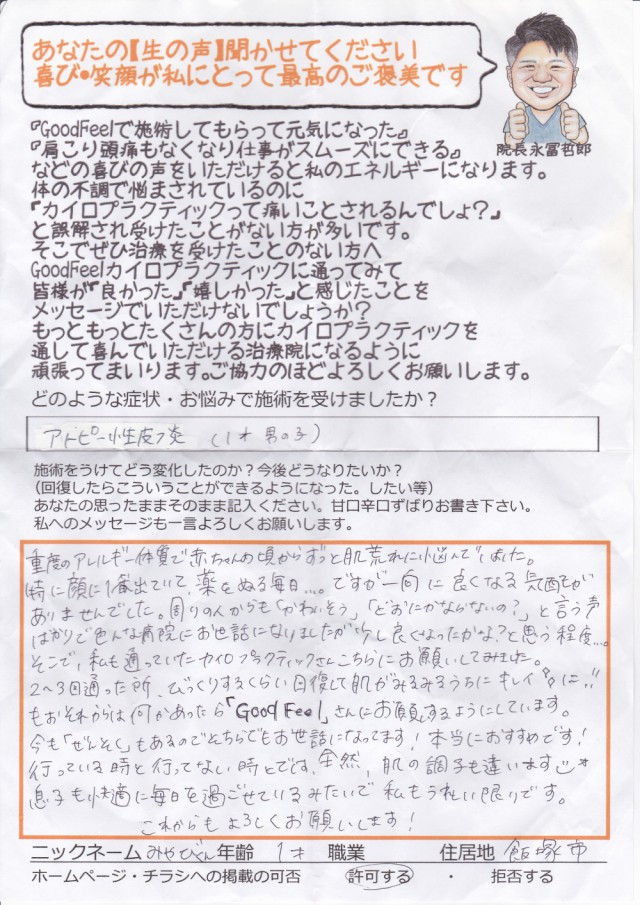 あなたの【生の声】聞かせてください
喜び・笑顔が私にとって最高のご褒美です
院長 永冨哲郎
『GoodFeelで施術してもらって元気になった』
『肩こり頭痛もなくなり仕事がスムーズにできる』
などの喜びの声をいただけると私のエネルギーになります。
体の不調で悩まされているのに
「カイロプラクティックって痛いことされるんでしょ？」
と誤解され受けたことがない方が多いです。
そこでぜひ治療を受けたことのない方へ
GoodFeelカイロプラクティックに通ってみて
皆様が「良かった」「嬉しかった」と感じたことを
メッセージでいただけないでしょうか？
もっともっとたくさんの方にカイロプラクティックを
通して喜んでいただける治療院になるように
頑張ってまいります。ご協力のほどよろしくお願いします。
どのような症状・お悩みで施術を受けましたか？
アトピー性皮フ炎 （1才 男の子）
施術をうけてどう変化したのか？今後どうなりたいか？
（回復したらこういうことができるようになった。したい等）
あなたの思ったままそのまま記入ください。甘口辛口ずばりお書き下さい。
私へのメッセージも一言よろしくお願いします。
重度のアレルギー体質で赤ちゃんの頃からずっと肌荒れに悩んでいました。
特に顔に1番出ていて、薬をぬる毎日…。ですが一向に良くなる気配が
ありませんでした。周りの人からも「かわいそう」「どおにかならないの？」と言う声
ばかりで色んな病院にお世話になりましたが少し良くなったかな？と思う程度…。
そこで、私も通っていたカイロプラクティックさんこちらにお願いしてみました。
2〜3回通った所、びっくりするくらい回復して肌がみるみるうちにキレイに!!
もおそれからは何かあったら「Good Feel」さんにお願いするようにしています。
今も「ぜんそく」もあるのでそちらでもお世話になってます！本当におすすめです！
行っている時と行ってない時とでは、全然、肌の調子も違います
息子も快適に毎日を過ごせているみたいで私もうれしい限りです。
これからもよろしくお願いします！
ニックネーム みやびくん 年齢 1才 職業 住居地 飯塚市
ホームページ・チラシへの掲載の可否 許可する ・ 拒否する